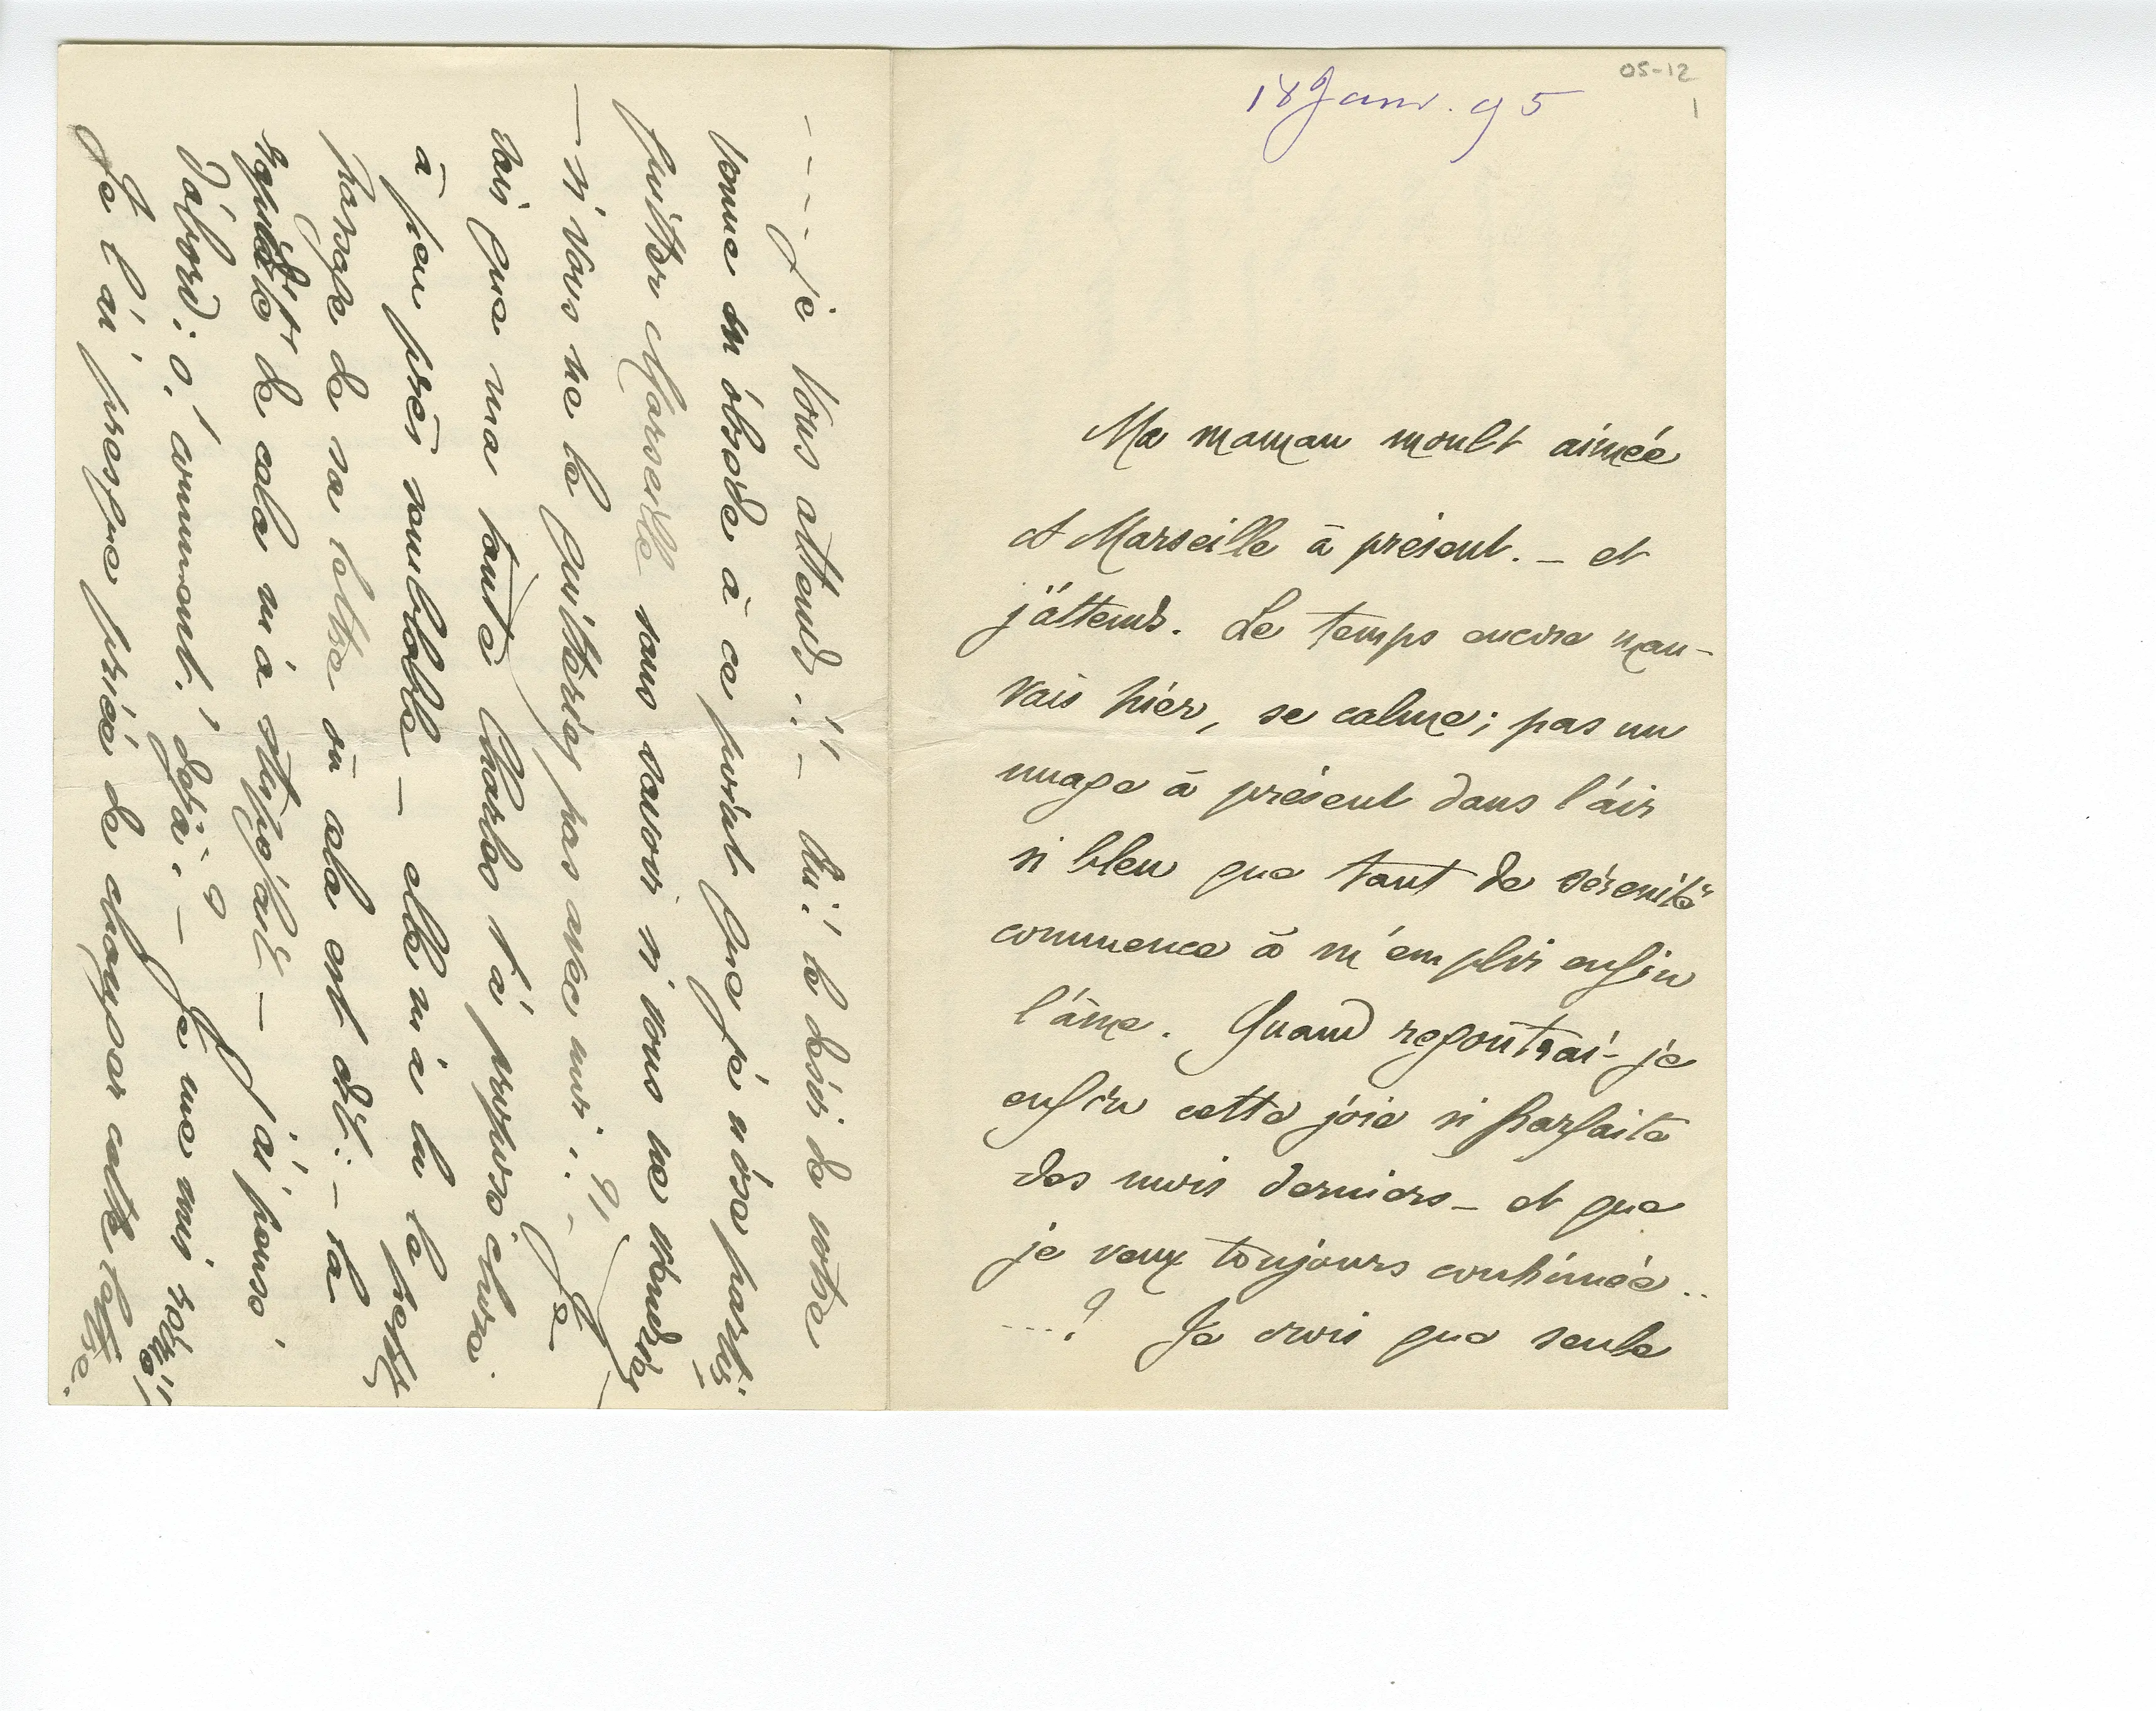 05-12
1
18 Janv. 95
Ma maman moult aimée
et Marseille à présent. – et
j'attends. Le temps encore mau-
vais hier, se calme ; pas un
nuage à présent dans l'air
si bleu que tant de sérénité
commence à m'emplir enfin
l'âme. Quand regoûtrai-je
enfin cette joie si parfaite
des mois derniers – et que
je veux toujours continuée ..
...? Je crois que seule
- - - Je vous attends..! – Oui! le désir de votre
venue m'obsède à ce point que je n'ose partir
quitter Marseille sans savoir si vous ne viendrez
– si vous ne le quitteriez pas avec moi ..? – Je
sais que ma tante Charles t'a proposé chose
à peu près semblable – elle m'a lu le
passage de sa lettre où cela est dit : – la
de cela m'a stupéfait – J'ai pensé
d'abord : o, comment! déjà ? – Je me suis
Je l'ai presque priée de changer cette lettre.